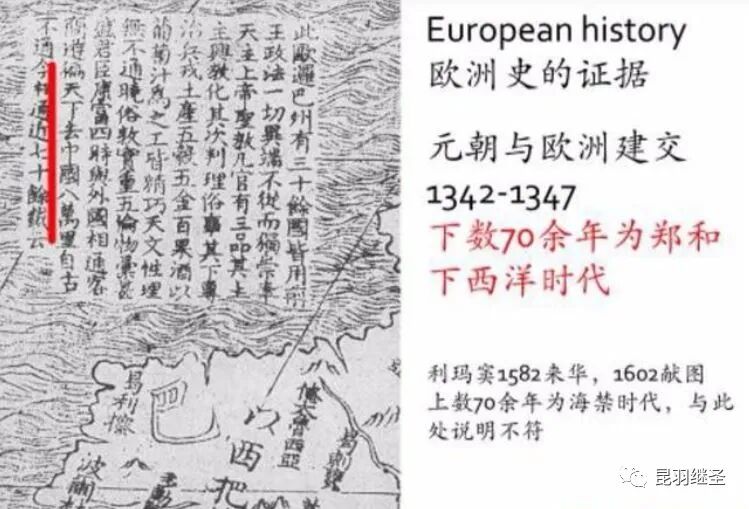 此歐邏巴州有三十餘國皆用前
王政法一切異端不從而獨崇奉
天主上帝聖教凡官有三品其上
主興教化其次判理俗事其下專
治兵戎土產五穀五金百果酒以
葡萄汁為之工皆精巧天文性理
無不通曉俗敦實重五倫物彙甚
盛君臣康富四時與外國相通客
商遊徧天下去中國八萬里自古
不通今相通近七十餘載云
巴
以西把
European history
欧洲史的证据
元朝与欧洲建交
1342-1347
下数70余年为郑和
下西洋时代
利玛窦1582来华，1602献图
上数70余年为海禁时代，与此
处说明不符
昆羽继圣